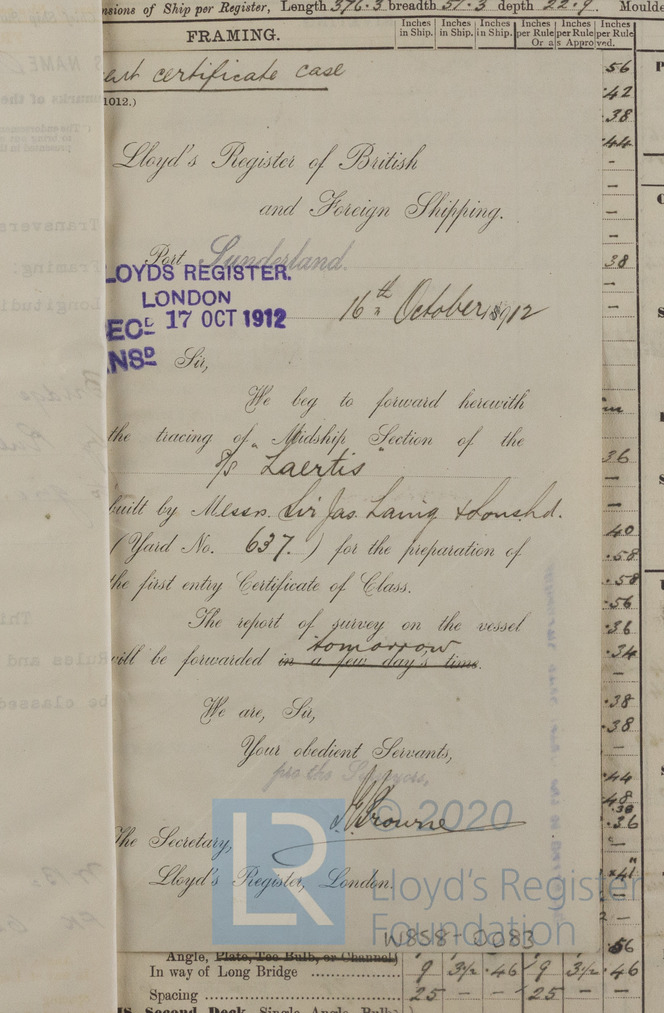 nsions of Ship per Register, Length 376.3 breadth 51.3 depth 22.9. Moulde
FRAMING.
Inches in Ship. Inches in Ship. Inches in Ship. Inches per Rule Inches per Rule Inches per Rule
Or as Approved.
certificate case
1012.)
56
.42
.38
.44
Lloyd's Register of British
and Foreign Shipping.
Port Sunderland.
38
LOYDS REGISTER.
LONDON
REC? 17 OCT 1912
ANSD
16th October, 1912
Sir,
We beg to forward herewith
the tracing of "Midship Section" of the
S/S Laertis
36
built by Messrs. Sir Jas. Laing & Sons Ld.
(Yard No. 637.) for the preparation of
40
.58
the first entry Certificate of Class.
.58
.56
The report of survey on the vessel
.36
tomorrow
will be forwarded in a few day's time.
.34
We are, Sir,
.38
.38
Your obedient Servants,
pro the Surveyors,
.44
48
.38
.36
Browne
© 2020
The Secretary,
Lloyd's Register, London.
LR
Lloyd's Register
Foundation
W858-0083
56
Angle, Plate, Tee Bulb, or Channel)
In way of Long Bridge 9 3½ .46 9 3½ .46
Spacing 25 — — 25 — —
Second Deck, Single Angle, Bulb